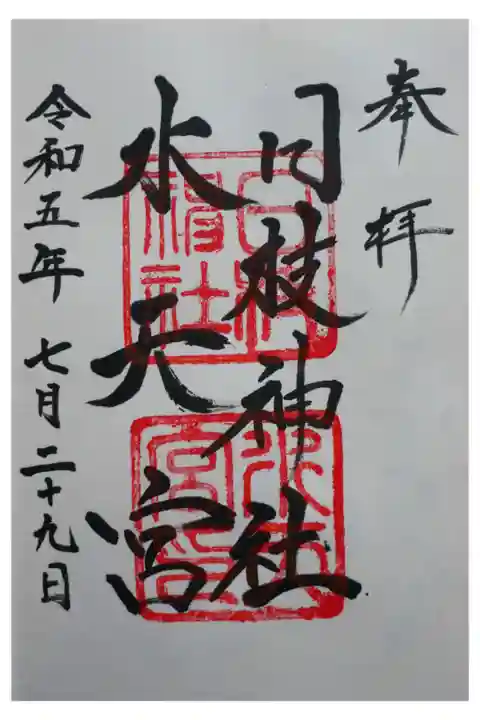 奉拝
日枝神社
水天宮
令和五年七月二十九日
日枝神社
水天宮